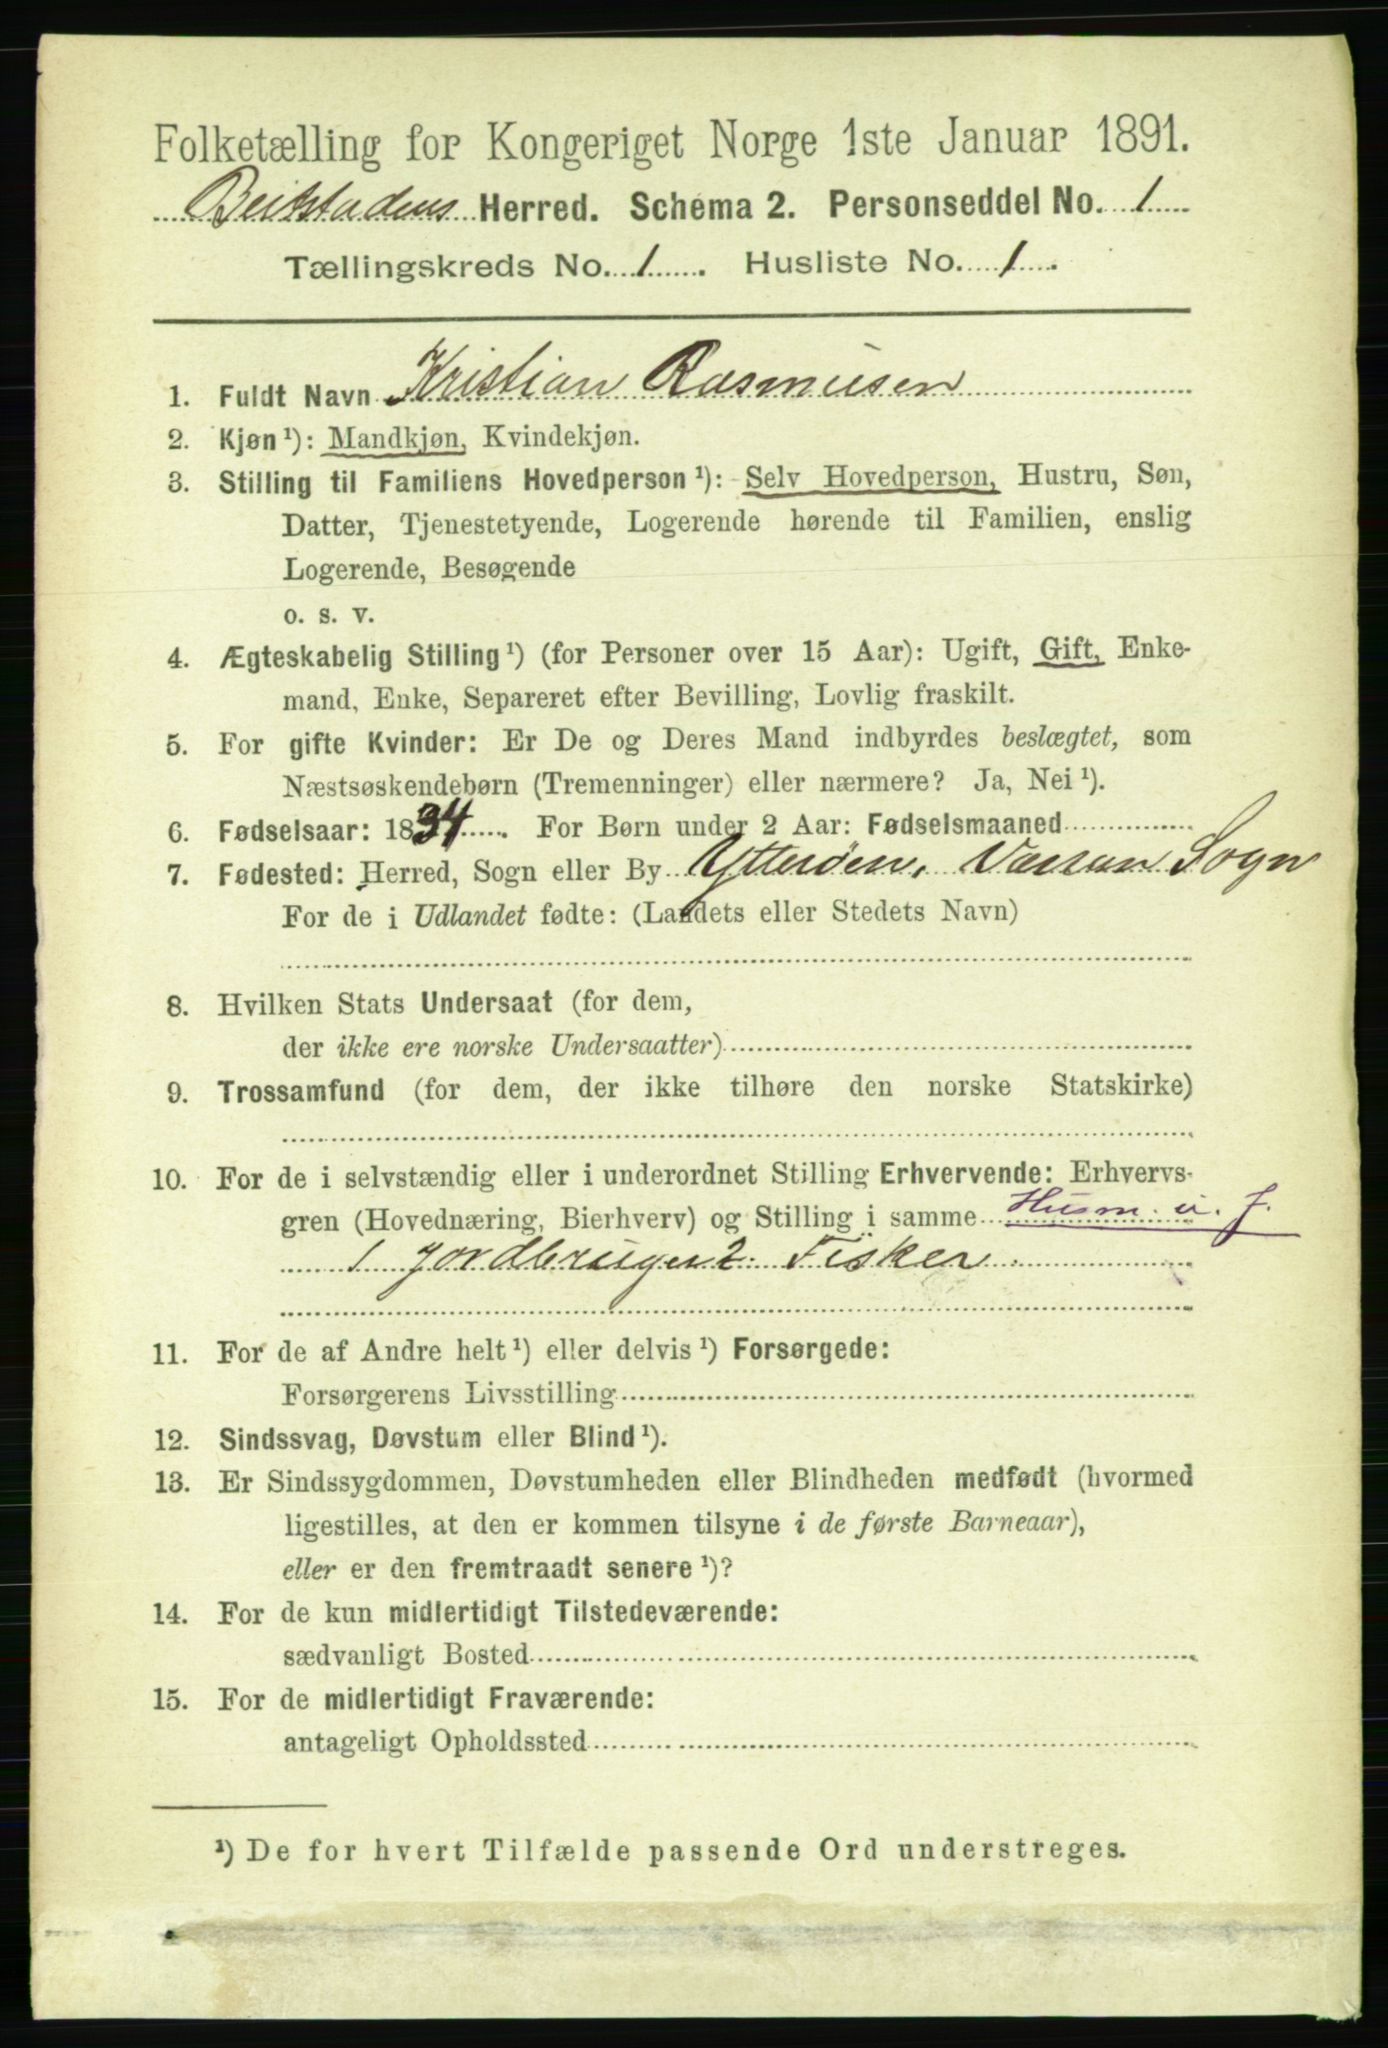 Folketælling for Kongeriget Norge 1ste Januar 1891.
Beitstadens Herred. Schema 2. Personseddel No. 1
Tællingskreds No. 1. Husliste No. 1.
1. Fuldt Navn Kristian Rasmusen
2. Kjøn¹): Mandkjøn, Kvindekjøn.
3. Stilling til Familiens Hovedperson¹): Selv Hovedperson, Hustru, Søn,
Datter, Tjenestetyende, Logerende hørende til Familien, enslig
Logerende, Besøgende
o. s. v.
4. Ægteskabelig Stilling¹) (for Personer over 15 Aar): Ugift, Gift, Enke-
mand, Enke, Separeret efter Bevilling, Lovlig fraskilt.
5. For gifte Kvinder: Er De og Deres Mand indbyrdes beslægtet, som
Næstsøskendebørn (Tremenninger) eller nærmere? Ja, Nei¹).
6. Fødselsaar: 1834. For Børn under 2 Aar: Fødselsmaaned
7. Fødested: Herred, Sogn eller By Ytterøen, Værran Sogn
For de i Udlandet fødte: (Landets eller Stedets Navn)
8. Hvilken Stats Undersaat (for dem,
der ikke ere norske Undersaatter)
9. Trossamfund (for dem, der ikke tilhøre den norske Statskirke)
10. For de i selvstændig eller i underordnet Stilling Erhvervende: Erhvervs-
gren (Hovednæring, Bierhverv) og Stilling i samme Husm. u. J.
1 Jordbruger 2. Fisker.
11. For de af Andre helt¹) eller delvis¹) Forsørgede:
Forsørgerens Livsstilling
12. Sindssvag, Døvstum eller Blind¹).
13. Er Sindssygdommen, Døvstumheden eller Blindheden medfødt (hvormed
ligestilles, at den er kommen tilsyne i de første Barneaar),
eller er den fremtraadt senere¹)?
14. For de kun midlertidigt Tilstedeværende:
sædvanligt Bosted
15. For de midlertidigt Fraværende:
antageligt Opholdssted
¹) De for hvert Tilfælde passende Ord understreges.